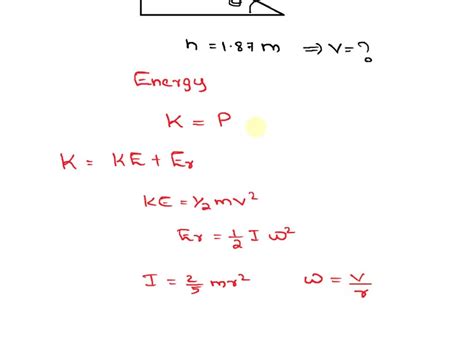 h = 1.87 m ⇒ V = ?
Energy
K = P
K = KE + Er
KE = ½ mv²
Er = 1/2 I ω²
I = 2/5 mr² ω = v/r